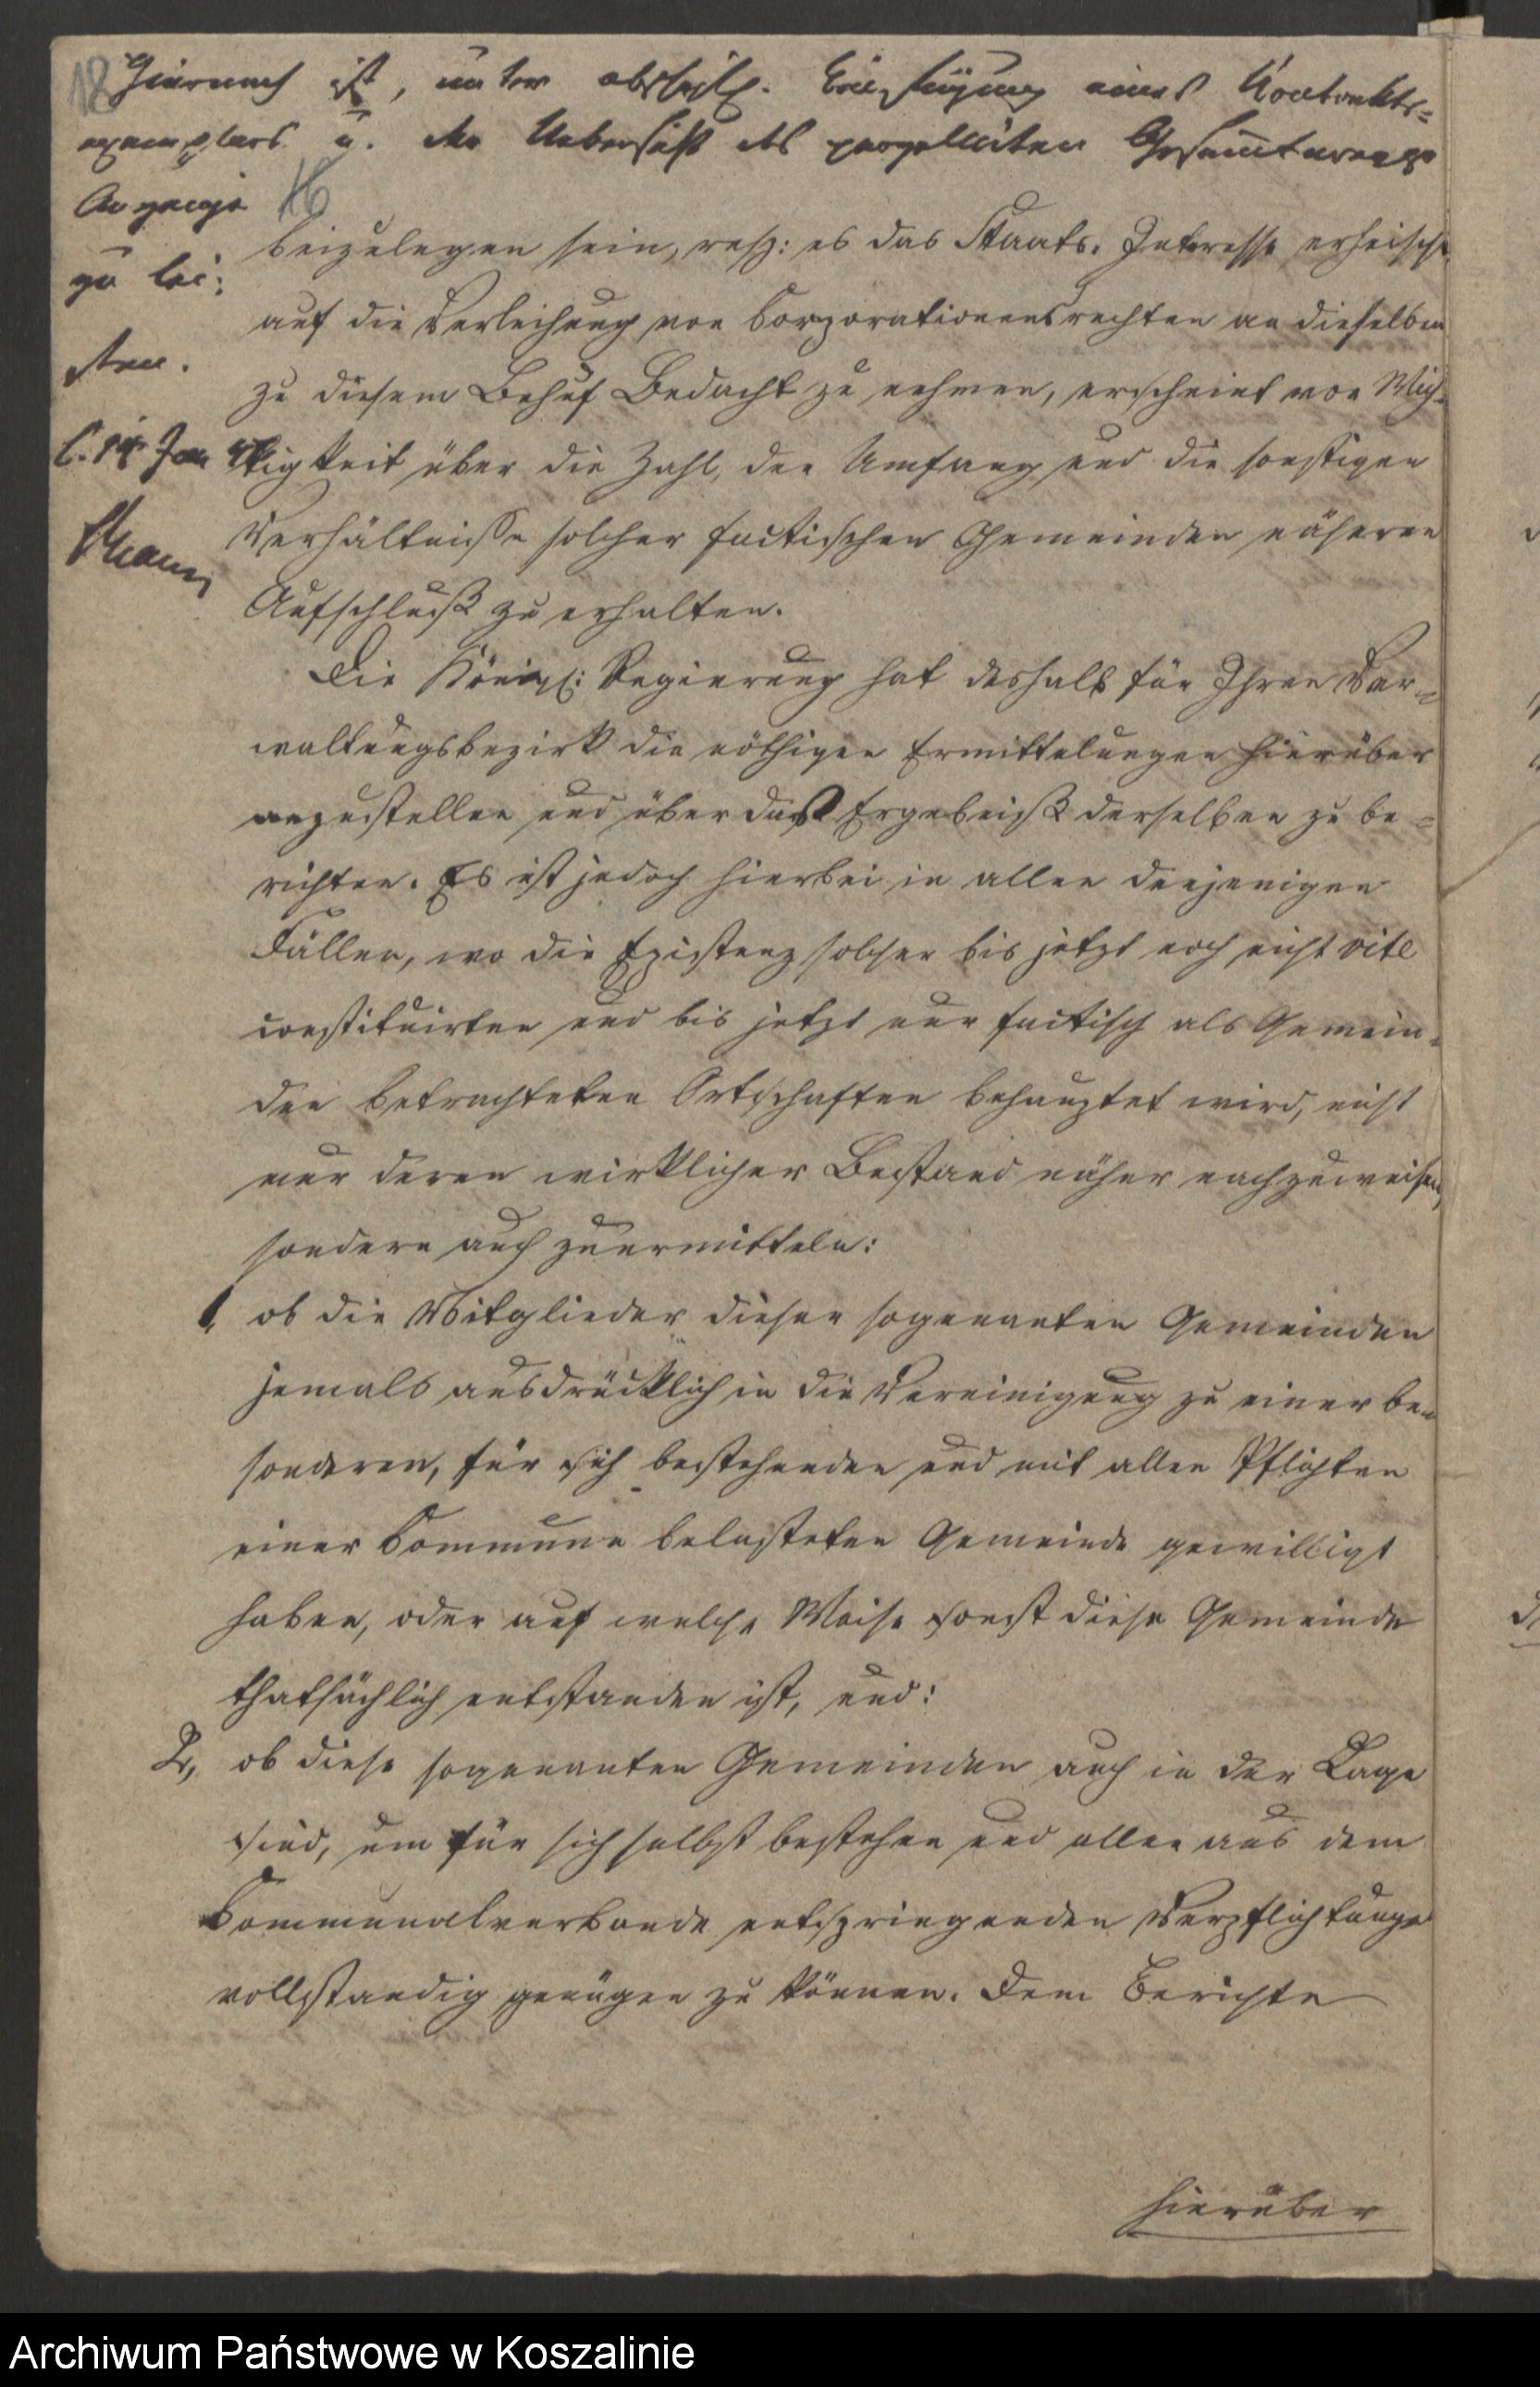 18
Hiernach ist, unter abschriftl. Beifügung eines Kontrakts-
exemplars u. der Uebersicht des parzellirten Gesammtareals
Anzeige
zu lei-
sten.
C. 14 Jan
16
beizulegen sein, resp: es das Staats-Interesse erheische
auf die Verleihung von Corporationensrechten an dieselben
zu diesem Behuf Bedacht zu nehmen, erscheint von Wich-
tigkeit über die Zahl, den Umfang und die sonstigen
Verhältnisse solcher factischen Gemeinden näheren
Aufschluß zu erhalten.
Die Königl: Regierung hat deshalb für Ihren Ver-
waltungsbezirk die nöthigen Ermittelungen hierüber
anzustellen und über das Ergebniß derselben zu be-
richten. Es ist jedoch hierbei in allen denjenigen
Fällen, wo die Existenz solcher bis jetzt noch nicht rite
constituirten und bis jetzt nur factisch als Gemein-
den betrachteten Ortschaften behauptet wird, nicht
nur deren wirklicher Bestand näher nachzuweisen,
sondern auch zu ermitteln:
1, ob die Mitglieder dieser sogenanten Gemeinden
jemals ausdrücklich in die Vereinigung zu einer be-
sonderen, für sich bestehenden und mit allen Pflichten
einer Commune belasteten Gemeinde gewilligt
haben, oder auf welche Weise sonst diese Gemeinde
thatsächlich entstanden ist, und:
2, ob diese sogenanten Gemeinden auch in der Lage
sind, um für sich selbst bestehen und allen aus dem
Communalverbande entspringenden Verpflichtungen
vollstandig genügen zu können. Dem Berichte
hierüber
Archiwum Państwowe w Koszalinie